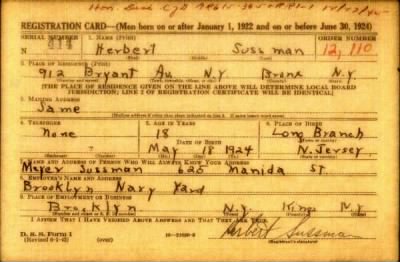 REGISTRATION CARD—(Men born on or after January 1, 1922 and on or before June 30, 1924)
SERIAL NUMBER 1. NAME (Print) ORDER NUMBER
N Herbert Sussman 12,110
2. PLACE OF RESIDENCE (Print)
912 Bryant Av N.Y. Bronx N.Y.
[THE PLACE OF RESIDENCE GIVEN ON THE LINE ABOVE WILL DETERMINE LOCAL BOARD
JURISDICTION; LINE 2 OF REGISTRATION CERTIFICATE WILL BE IDENTICAL]
3. MAILING ADDRESS
Same
4. TELEPHONE 5. AGE IN YEARS 6. PLACE OF BIRTH
None 18 Long Branch
DATE OF BIRTH
May 18 1924 N. Jersey
7. NAME AND ADDRESS OF PERSON WHO WILL ALWAYS KNOW YOUR ADDRESS
Meyer Sussman 625 Manida ST
8. EMPLOYER'S NAME AND ADDRESS
Brooklyn Navy Yard
9. PLACE OF EMPLOYMENT OR BUSINESS
Brooklyn N.Y. Kings N.Y
I AFFIRM THAT I HAVE VERIFIED ABOVE ANSWERS AND THAT THEY ARE TRUE.
D. S. S. Form 1
Herbert Sussman
(Registrant's signature)